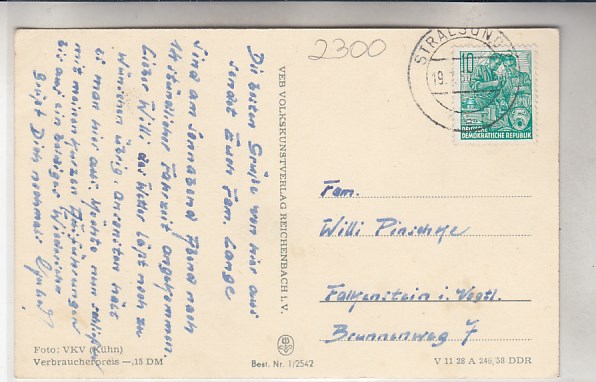 Die besten Grüße von hier aus
sendet Euch Fam. Lange
Sind am Sonnabend Abend nach
14 stündlicher Fahrzeit angekommen.
Lieber Willi das Wetter läßt noch zu
Wünschen übrig. Ansonsten hält
es man hier aus. Möchte nun schließen
mit meinen kurzen Ausführungen
bis auf ein baldiges Wiedersehn
Grüßt Dich nochmals
Foto: VKV (Kühn)
Verbraucherpreis —,15 DM
VEB VOLKSKUNSTVERLAG REICHENBACH i. V.
Best. Nr. 1/2542
2300
STRALSUND
19.
10
DEUTSCHE
DEMOKRATISCHE REPUBLIK
Fam.
Willi
Falkenstein i. Vogtl.
Brunnenweg 7
V 11 28 A 246/58 DDR